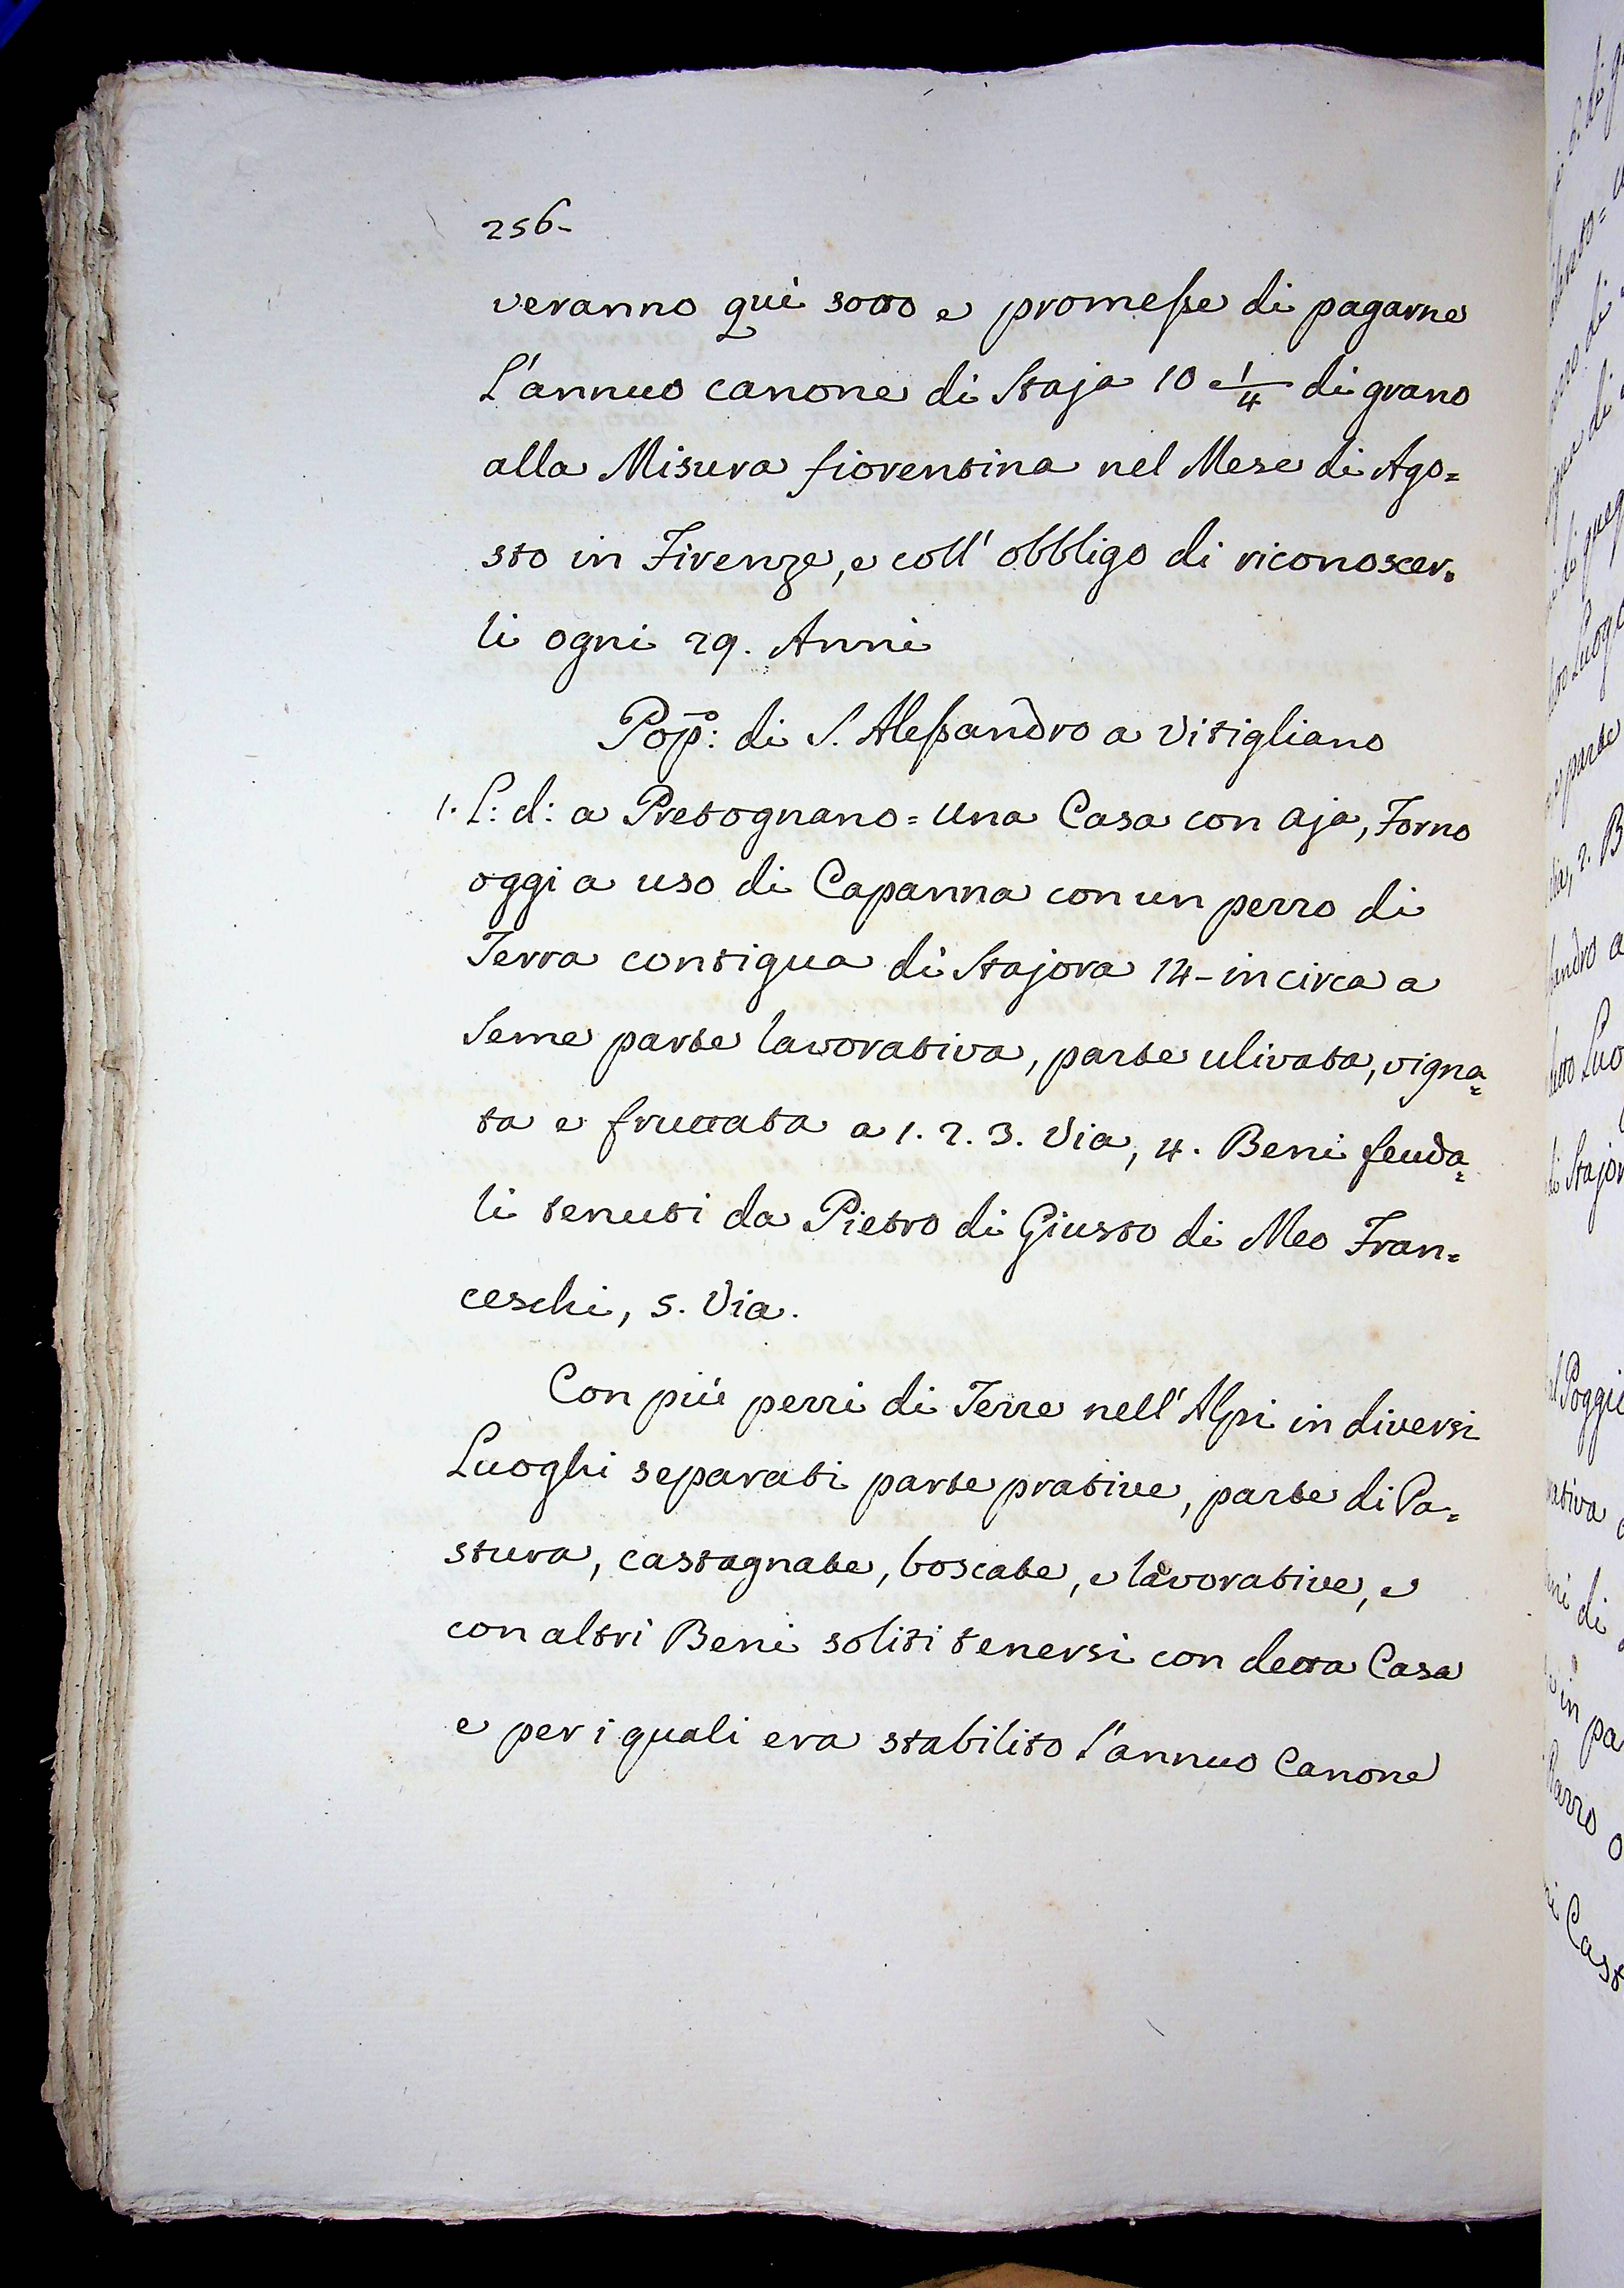 256-
veranno qui sotto e promesse di pagarne
L'annuo canone di Staja 10 e 1/4 di grano
alla Misura fiorentina nel Mese di Ago=
sto in Firenze, e coll' obbligo di riconoscer=
li ogni 29. Anni
Pop̄o: di S. Alessandro a Vitigliano
1. L: d: a Pretognano = Una Casa con Aja, Forno
oggi a uso di Capanna con un pezzo di
Terra contigua di Stajora 14 - in circa a
Seme parte lavorativa, parte ulivata, vigna=
ta e fruttata a 1. 2. 3. Via, 4. Beni feuda=
li tenuti da Pietro di Giusto di Meo Fran=
ceschi, 5. Via.
Con più pezzi di Terre nell' Alpi in diversi
Luoghi separati parte prative, parte di Pa=
stura, castagnate, boscate, e lavorative, e
con altri Beni soliti tenersi con detta Casa
e per i quali era stabilito l'annuo Canone